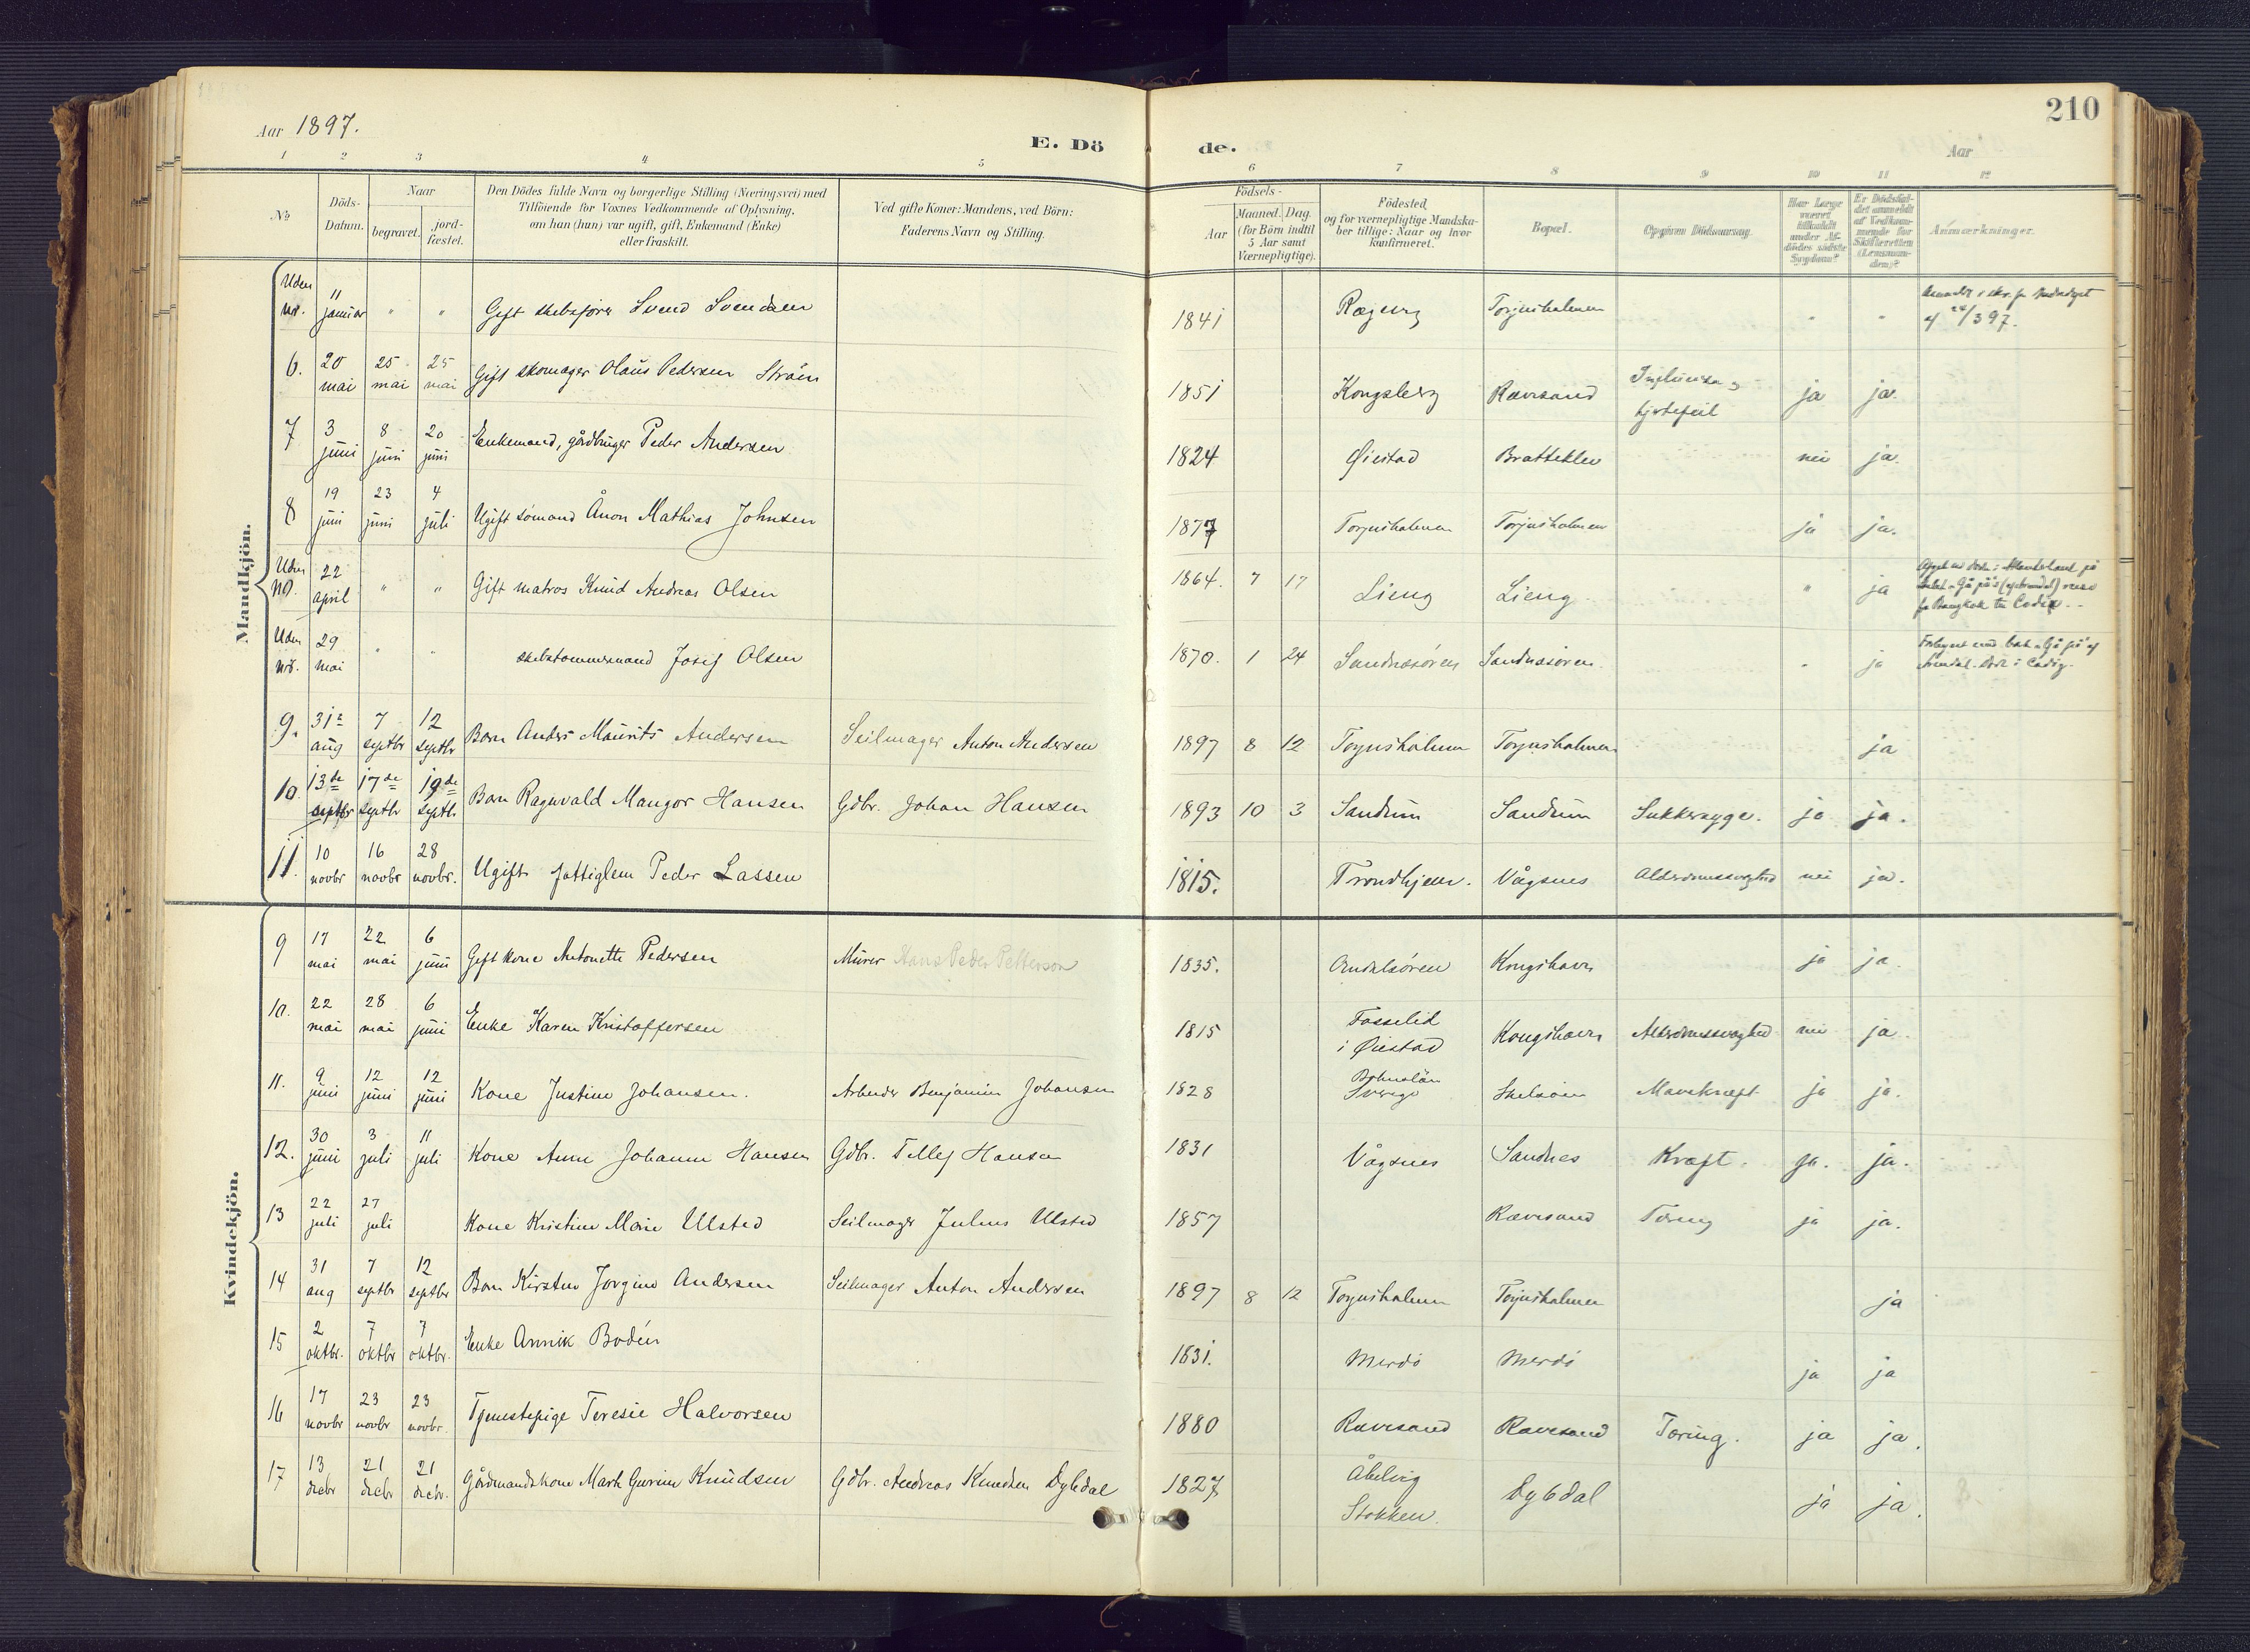 210
Aar 1897.
E. Dö de.
Aar
1 2 3 4 5 6 7 8 9 10 11 12
No
Döds-Datum.
Naar
begravet.
jord-fæstet.
Den Dödes fulde Navn og borgerlige Stilling (Næringsvei) med
Tilföiende for Voxnes Vedkommende af Oplysning,
om han (hun) var ugift, gift, Enkemand (Enke)
eller fraskilt.
Ved gifte Koner: Mandens, ved Börn:
Faderens Navn og Stilling.
Födsels-
Aar
Maaned. Dag.
(for Börn indtil
5 Aar samt
Værnepligtige).
Födested,
og for værnepligtige Mandska-
ber tillige: Naar og hvor
konfirmeret.
Bopæl.
Opgiven Dödsaarsag.
Har Læge
været
tilkaldt
under Af-
dödes sidste
Sygdom?
Er Dödsfal-
det anmeldt
af Vedkom-
mende for
Skifteretten
(Lensman-
den)?
Anmærkninger.
Mandkjön.
Uden nr. 11 januar " " Gift skibsförer Svend Svendsen 1841 Torjusholmen - -
6. 20 mai 25 mai 25 mai Gift skomager Olaus Pedersen Ström 1851 Kongsberg Rævesand Influensa og hjertefeil ja ja.
7 3 juni 8 juni 20 juni Enkemand, gårdbruger Peder Andersen 1824 Øiestad Bratteklev nei ja.
8 19 juni 23 juni 4 juli Ugift sömand Ånon Mathias Johnsen 1877 Torjusholmen Torjusholmen ja ja.
Uden No. 22 april " " Gift matros Knud Andreas Olsen 1864. 7 17 Lieng Lieng. " ja
Uden nr. 29 mai " " skibstømmermand Josef Olsen 1870. 1 24 Sandnessøren Sandnessøren - ja
9. 31te aug 7 septbr 12 septbr Barn Anders Maurits Andersen Seilmager Anton Andersen 1897 8 12 Torjusholmen Torjusholmen ja
10. 13de septbr 17de septbr 19de septbr Barn Ragnvald Mangor Hansen Gdbr. Johan Hansen 1893 10 3 Sandum Sandum Sukkersyge. ja ja.
11. 10 novbr 16 novbr 28 novbr. Ugift fattiglem Peder Lassen 1815. Trondhjem. Vågsnes Alderdomssvaghed nei ja.
Kvindekjön.
9 17 mai 22 mai 6 juni Gift kone Antonette Pedersen Murer Hans Peder Petterson 1835. Arendalsören Kongshavn ja ja.
10. 22 mai 28 mai 6 juni Enke Karen Kristoffersen 1815 Fosselid i Øiestad Kongshavn Alderdomssvaghed nei ja.
11. 9 juni 12 juni 12 juni Kone Justine Johansen. Arbeider Benjamin Johansen 1828 Bohuslän Sverige Mavekræft ja ja.
12. 30 juni 3 juli 11 juli Kone Anne Johanne Hansen Gdbr. Tellef Hansen 1831 Vågsnes Sandnes Kræft. ja. ja.
13 22 juli 27 juli Kone Kristine Marie Ulsted Seilmager Julius Ulsted 1857 Rævesand Tæring ja ja.
14 31 aug 7 septbr 12 septbr Barn Kirsten Jorgine Andersen Seilmager Anton Andersen 1897 8 12 Torjusholmen Torjusholmen ja
15 2 oktbr. 7 oktbr 7 oktbr. Enke Annik Bodén 1831. Merdö Merdö ja ja
16 17 novbr 23 novbr 23 novbr. Tjenestepige Teresie Halvorsen 1880 Rævesand Rævesand Tæring. ja ja.
17 13 decbr 21 decbr 21 decbr. Gårdmandskone Marte Gurine Knudsen Gdbr. Andreas Knudsen Dybdal 1827 Stokken. Dybdal ja ja.